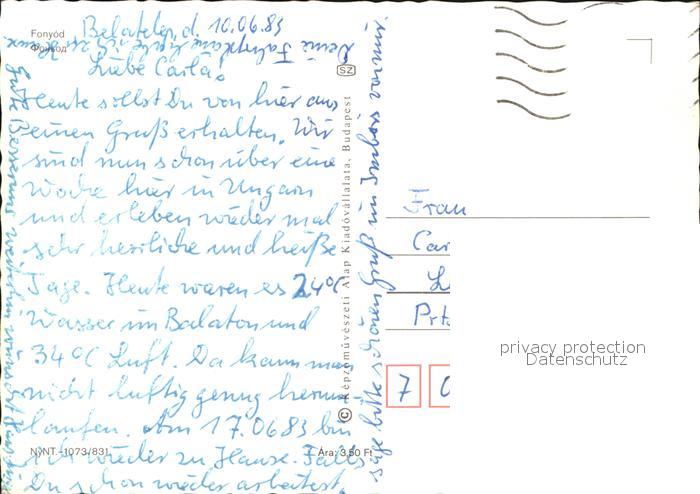 Fonyód
Фоньод
Belatelep, d. 10.06.83
Liebe Carla!
Heute sollst Du von hier aus
einen Gruß erhalten. Wir
sind nun schon über eine
Woche hier in Ungarn
und erleben wieder mal
sehr herrliche und heiße
Tage. Heute waren es 24°C
Wasser im Balaton und
34°C Luft. Da kann man
nicht luftig genug herum-
laufen. Am 17.06.83 bin
ich wieder zu Hause. Falls
Du schon wieder arbeitest,
sage bitte schönen Gruß im Imbiss
Gute Besserung
Deine
SZ
© Képzőművészeti Alap Kiadóvállalata, Budapest
NyNT.-1073/831
Ára: 3,50 Ft
Frau
Car
L
Prt
7 0
privacy protection
Datenschutz